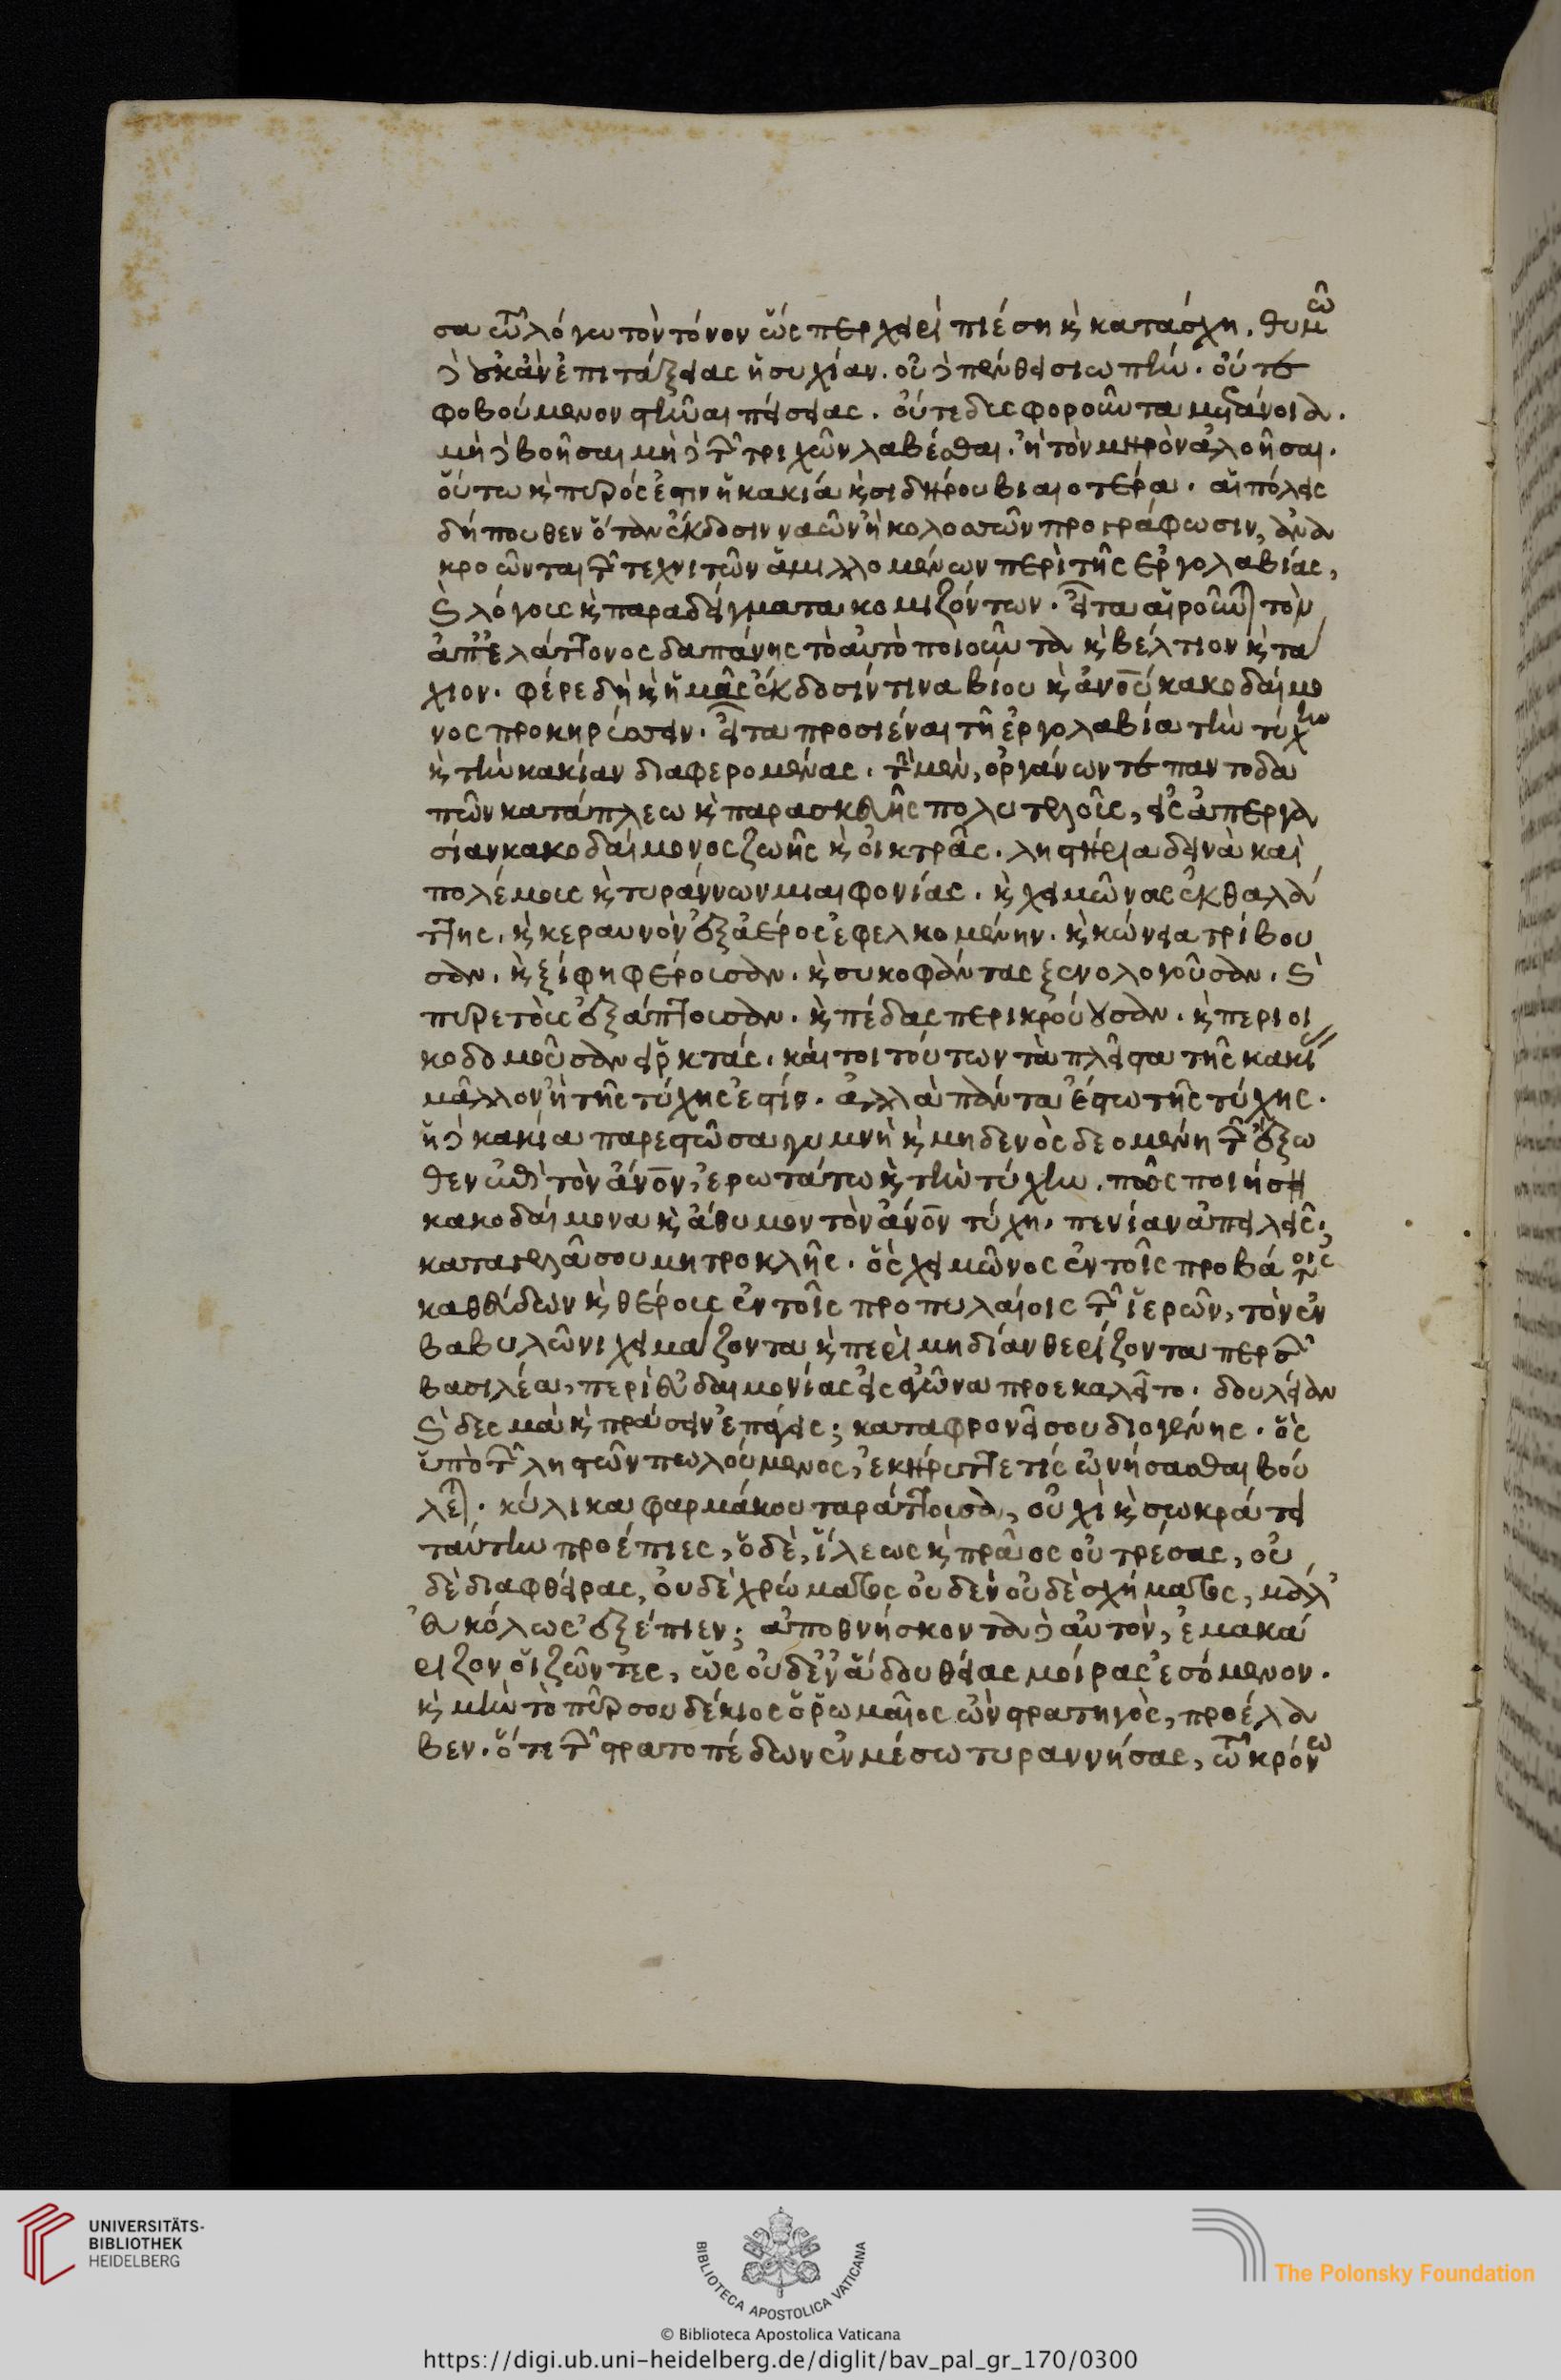 σα τῶ λόγω τὸν τόνον ὥσπερ χειρὶ πιέση κ̀ κατάσχη. θυμῶ
δ' οὐκ ἂν ἐπιτάξειας ἡσυχίαν. οὐδὲ πένθει σιωπήν. οὔτε
φοβούμενον στῆναι πείσειας. οὔτε δυσφοροῦντα μετανοία.
μὴ δὲ βοῆσαι μὴ δὲ τῶν τριχῶν λαβέσθαι. ἢ τὸν μηρὸν ἀλοῆσαι.
οὕτω κ̀ πυρός ἐστιν ἡ κακία κ̀ σιδήρου βιαιοτέρα. αἱ πόλεις
δήπουθεν ὅταν ἔκδοσιν ναῶν ἢ κολοσσῶν προγράφωσιν,
κροῶνται τῶν τεχνιτῶν ἁμιλλομένων περὶ τῆς ἐργολαβίας,
κ̀ λόγους κ̀ παραδείγματα κομιζόντων. εἶτα αἱροῦνται τὸν
ἀπ' ἐλάττονος δαπάνης τὸ αὐτὸ ποιοῦντα κ̀ βέλτιον κ̀ τά
χιον. φέρε δὴ κ̀ ἡμᾶς ἔκδοσίν τινα βίου κ̀ ἀνου κακοδαίμο
νος προκηρύσσειν. εἶτα προσιέναι τῆ ἐργολαβία τὴν τύχην
κ̀ τὴν κακίαν διαφερομένας. τὴν μὲν, ὀργάνων τε παντοδα
πῶν κατάπλεω κ̀ παρασκευῆς πολυτελοῦς, εἰς ἀπεργα
σίαν κακοδαίμονος ζωῆς κ̀ οἰκτρᾶς. ληστήρια δεινὰ καὶ
πολέμους κ̀ τυράννων μιαιφονίας. κ̀ χειμῶνας ἐκ θαλά
ττης. κ̀ κεραυνὸν ἐξ ἀέρος ἐφελκομένην. κ̀ κώνεια τρίβου
σαν. κ̀ ξίφη φέρουσαν. κ̀ συκοφάντας ξενολογοῦσαν. κ̀
πυρετοὺς ἐξάπτουσαν. κ̀ πέδας περικρούουσαν. κ̀ περιοι
κοδομοῦσαν εἱρκτάς. καίτοι τούτων τὰ πλεῖστα τῆς κακί
μᾶλλον ἢ τῆς τύχης ἐστίν. ἀλλὰ πάντα ἔστω τῆς τύχης.
ἡ δὲ κακία παρεστῶσα γυμνὴ κ̀ μηδενὸς δεομένη τῶν ἔξω
θεν ἐπὶ τὸν ἄνον, ἐρωτάτω κ̀ τὴν τύχην. πῶς ποιήσει
κακοδαίμονα κ̀ ἄθυμον τὸν ἄνον τύχη, πενίαν ἀπειλεῖς;
καταγελᾶ σου μητροκλῆς. ὃς χειμῶνος ἐν τοῖς προβάτοις
καθεύδων κ̀ θέρους ἐν τοῖς προπυλαίοις τῶν ἱερῶν, τὸν ἐν
βαβυλῶνι χειμάζοντα κ̀ περὶ μηδίαν θερίζοντα περσῶν
βασιλέα, περὶ εὐδαιμονίας εἰς ἀγῶνα προεκαλεῖτο. δουλείαν
κ̀ δεσμὰ κ̀ πρᾶσιν ἐπάγεις; καταφρονεῖ σου διογένης. ὃς
ὑπὸ τῶν ληστῶν πωλούμενος, ἐκήρυττε τίς ὠνήσασθαι βού
λεται. κύλικα φαρμάκου ταράττουσα, οὐχὶ κ̀ σωκράτει
ταύτην προέπιες, ὁ δὲ, ἵλεως κ̀ πρᾶος οὐ τρέσας, οὐ
δὲ διαφθείρας, οὐδὲ χρώματος οὐδὲν οὐδὲ σχήματος, μάλ'
εὐκόλως ἐξέπιεν; ἀποθνήσκοντα δὲ αὐτὸν, ἐμακά
ριζον οἱ ζῶντες, ὡς οὐδ' ἐν ἅδου θείας μοίρας ἐσόμενον.
κ̀ μὴν τὸ πῦρ σου δέκιος ὁ ῥωμαῖος ὢν στρατηγὸς, προέλα
βεν. ὅτε τῶν στρατοπέδων ἐν μέσω τυραννήσας, τῶ κρόνω
UNIVERSITÄTS-
BIBLIOTHEK
HEIDELBERG
BIBLIOTECA APOSTOLICA VATICANA
The Polonsky Foundation
© Biblioteca Apostolica Vaticana
https://digi.ub.uni-heidelberg.de/diglit/bav_pal_gr_170/0300